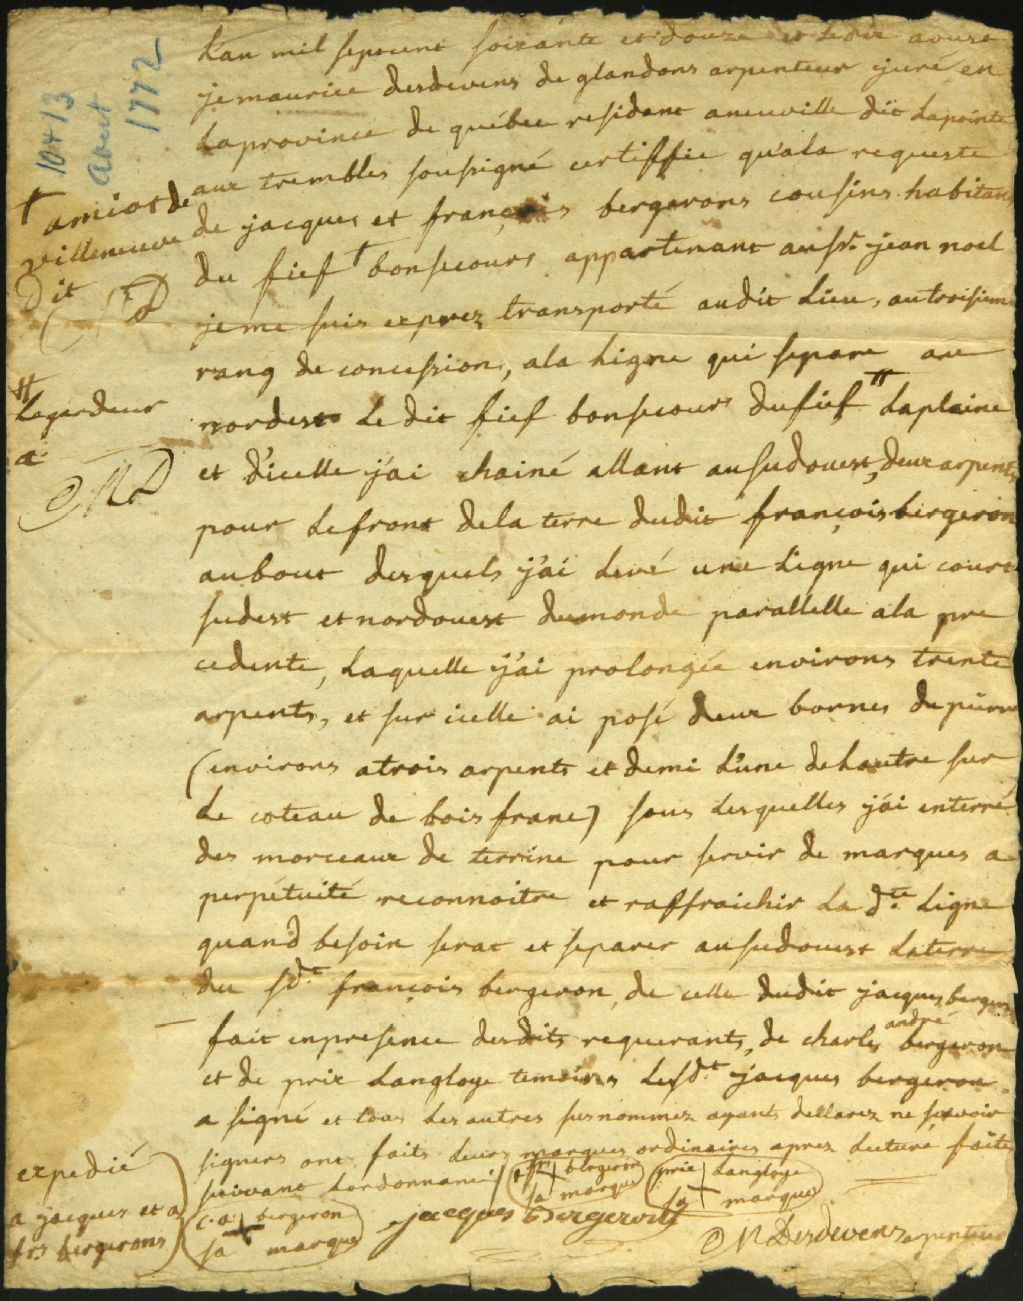 10 et 13
aoust
1772
Lan mil septcent soixante et douze et le dix aoust
je maurice desdevens de glandons arpenteur juré en
La province de québec residant aneuville dit Lapointe
aux trembles soussigné certiffie qu'ala requeste
de jacques et françois bergerons cousins habitans
du fief † bonsecours appartenant au Sr. jean noel
je me suis exprez transporté audit Lieu, autroisieme
rang de concession, ala Ligne qui separe au
nordest Le dit fief bonsecours dufief # Laplaine
et d'icelle j'ai chainé allant ausudouest, deux arpents
pour Lefront dela terre dudit françois bergeron
aubout desquels j'ai Levé une Ligne qui court
sudest et nordouest dumonde parallelle ala pre
cedente, Laquelle j'ai prolongée environs trente
arpents, et sur icelle ai posé deux bornes depierre
(environs atrois arpents et demi L'une deLautre sur
Le coteau de bois franc) sous Lesquelles j'ai enterré
des morceaux de terrine pour servir de marques a
perpétuité reconnoitre et raffraichir La de. te Ligne
quand besoin serat et separer ausudouest Laterre
du sdt. françois bergeron, de celle dudit jacques bergeron
fait enpresence desdits requerants, de charles andré bergeron
et de prix Langloye temoins Lesdt. jacques bergeron
a signé et tous Les autres susnommez ayants dellarez ne scavoir
signers ont faits Leurs marques ordinaires apres Lecture faite
suivant Lordonnance/
frs + bergeron
sa marque
prix + Langloye
sa marque
c. a. bergeron
sa + marque
jacques Bergeron
M Desdevens arpenteur
† amiot de
villeneuve
dit
MD
# Legardeur
a
MD
expedié
a jacques et a
frs. bergerons